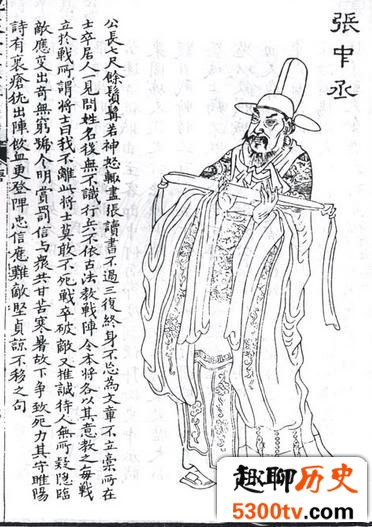 張中丞
公長七尺餘鬚髯若神怒輒盡張讀書不過三復終身不忘為文章不立藁所在
士卒居人一見問姓名後無不識行兵不依古法教戰陣令本將各以其意教之每戰
立於戰所謂將士曰我不離此將士莫敢不死戰卒破敵又推誠待人無所疑隱臨
敵應變出奇無窮號令明賞罰信與衆共甘苦寒暑故下爭致死力其守睢陽
詩有裹瘡猶出陣飲血更登陴忠信應難敵堅貞諒不移之句
趣聊历史
5300tv.com